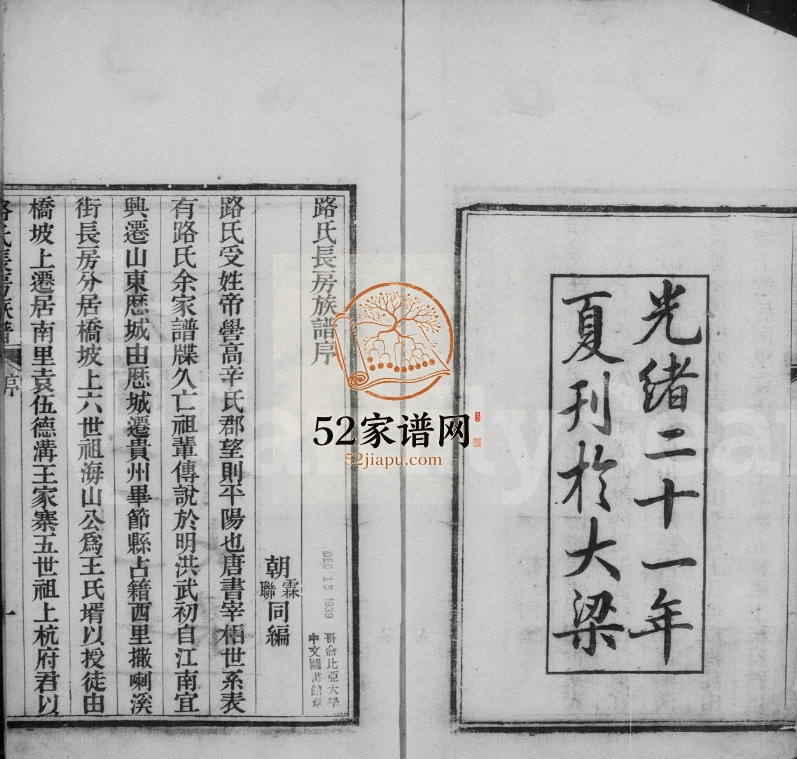 光緒二十一年
夏刊於大梁
路氏長房族譜序
朝霖
聯同編
路氏受姓帝嚳高辛氏郡望則平陽也唐書宰相世系表
有路氏余家譜牒久亡祖輩傳說於明洪武初自江南宜
興遷山東歷城由歷城遷貴州畢節縣占籍西里撒喇溪
街長房分居橋坡上六世祖海山公爲王氏壻以授徒由
橋坡上遷居南里袁伍德溝王家寨五世祖上杭府君以
路氏長房族譜
序
一
DEC 15 1939
哥倫比亞大學
中文圖書館章
52家谱网
52jiapu.com